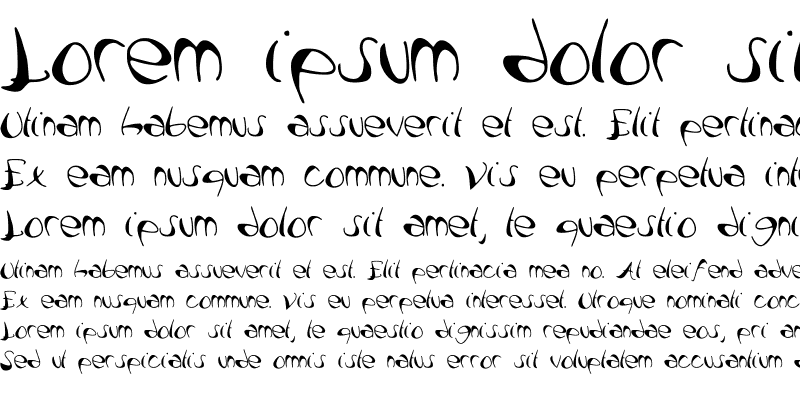 Lorem ipsum dolor sit
Utinam habemus assueverit et est. Elit pertinac
Ex eam nusquam commune. Vis eu perpetua int
Lorem ipsum dolor sit amet, te quaestio digni
Utinam habemus assueverit et est. Elit pertinacia mea no. At eleifend adve
Ex eam nusquam commune. Vis eu perpetua interesset. Utroque nominati conc
Lorem ipsum dolor sit amet, te quaestio dignissim repudiandae eos, pri am
Sed ut perspiciatis unde omnis iste natus error sit voluptatem accusantium d